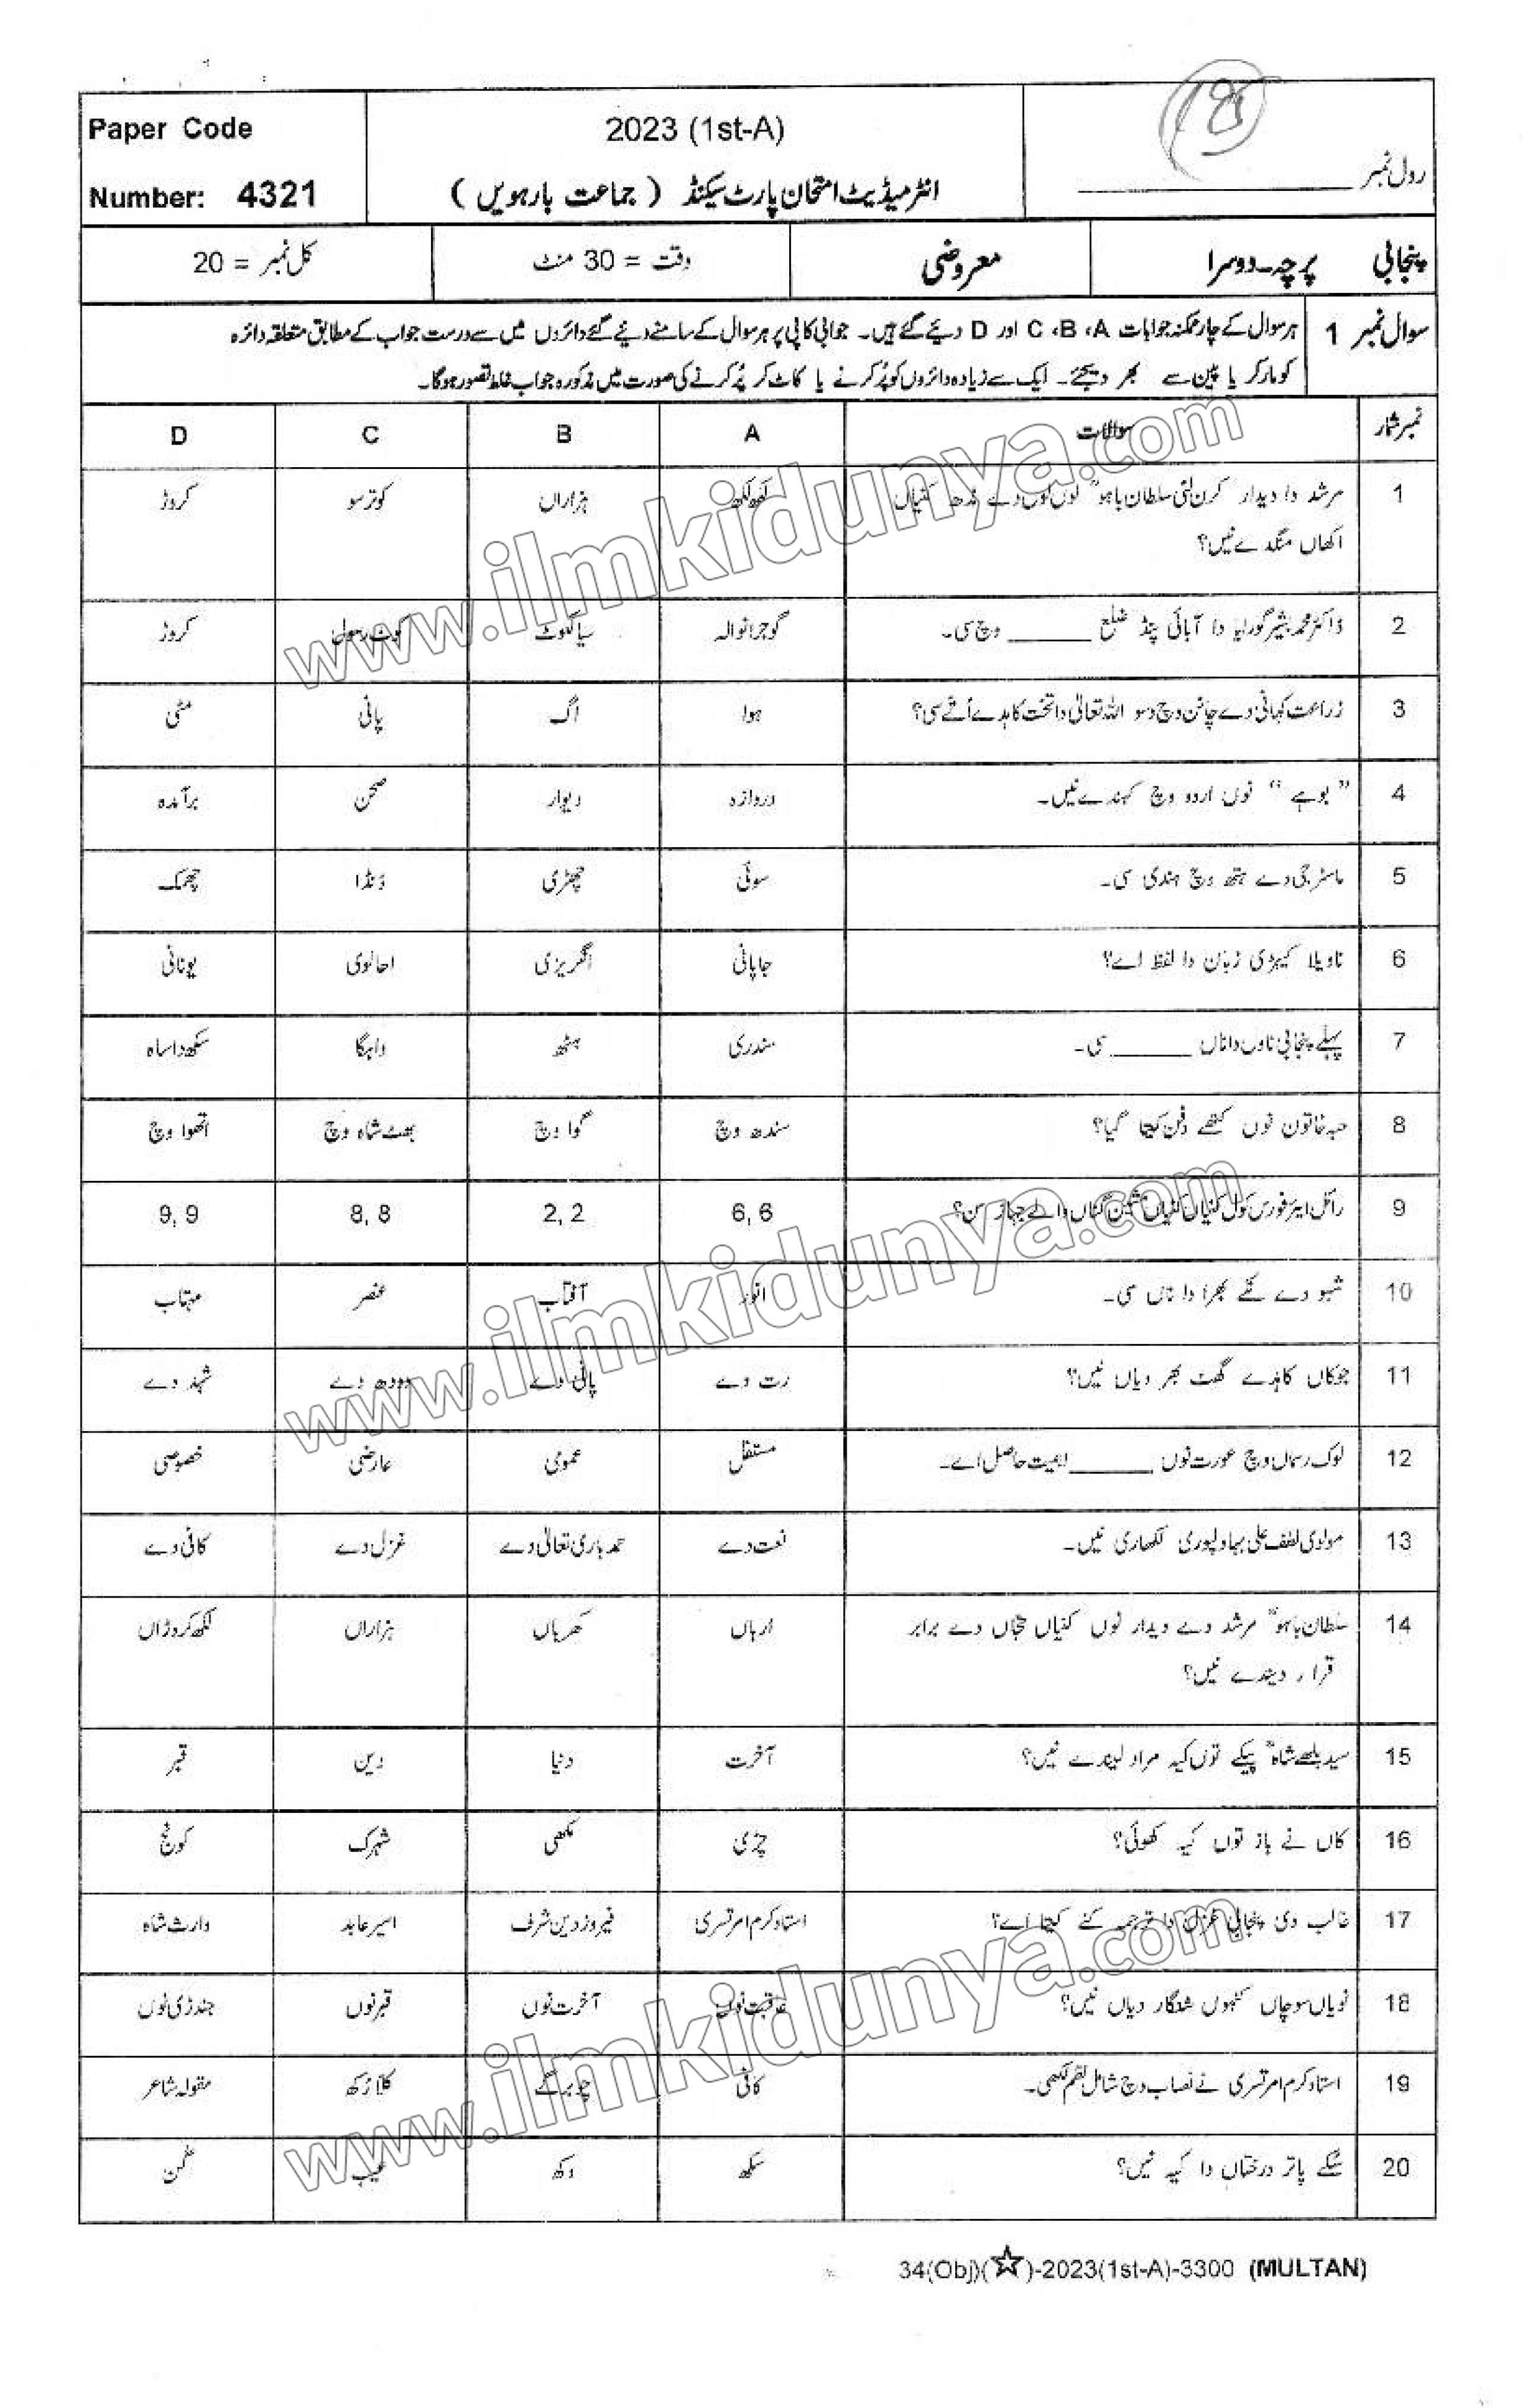 Paper Code
Number: 4321
2023 (1st-A)
انٹرمیڈیٹ امتحان پارٹ سیکنڈ ( جماعت بارہویں )
18
رول نمبر
پنجابی پرچہ۔دوسرا معروضی وقت = 30 منٹ کل نمبر = 20
سوال نمبر 1 ہر سوال کے چار ممکنہ جوابات C ،B ،A اور D دیئے گئے ہیں۔ جوابی کاپی پر ہر سوال کے سامنے دیئے گئے دائروں میں سے درست جواب کے مطابق متعلقہ دائرہ
کو مارکر یا پین سے بھر دیجئے۔ ایک سے زیادہ دائروں کو پُر کرنے یا کاٹ کر پُر کرنے کی صورت میں مذکورہ جواب غلط تصور ہوگا۔
نمبر شمار سوالات A B C D
1 مرشد دا دیدار کرن لئی سلطان باہوؒ لوں لوں دے مڈھ کنیاں لکھ لکھ ہزاراں کوتر سو کروڑ
اکھاں منگدے نیں؟
2 ڈاکٹر محمد بشیر گورایہ دا آبائی پنڈ ضلع ______ وچ سی۔ گوجرانوالہ سیالکوٹ کوٹ رسول کروڑ
3 زراعت کہانی دے چانن وچ دسو اللہ تعالیٰ دا تخت کاہدے اُتے سی؟ ہوا اگ پانی مٹی
4 ”بوہے“ نوں اردو وچ کہندے نیں۔ دروازہ دیوار صحن برآمدہ
5 ماسٹر جی دے ہتھ وچ ہندی سی۔ سوٹی چھڑی ڈنڈا چھمک
6 ناویلا کیہڑی زبان دا لفظ اے؟ جاپانی انگریزی اطالوی یونانی
7 پہلے پنجابی ناول دا ناں ______ سی۔ سندری ہٹھ واہگا سکھ دا ساہ
8 حبہ خاتون نوں کتھے دفن کیتا گیا؟ سندھ وچ گوا وچ بھٹ شاہ وچ اتھوا وچ
9 رائل ایئر فورس کول کنیاں کنیاں مشین گناں والے جہاز سن؟ 6, 6 2, 2 8, 8 9, 9
10 شبو دے نکے بھرا دا ناں سی۔ انور آفتاب عنصر مہتاب
11 جوکاں کاہدے گھٹ بھر دیاں نیں؟ رت دے پانی دے دودھ دے شہد دے
12 لوک رسماں وچ عورت نوں ______ اہمیت حاصل اے۔ مستقل عمومی عارضی خصوصی
13 مولوی لطف علی بہاولپوری لکھاری نیں۔ نعت دے حمد باری تعالیٰ دے غزل دے کافی دے
14 سلطان باہوؒ مرشد دے دیدار نوں کنیاں حجاں دے برابر ارباں کھرباں ہزاراں لکھ کروڑاں
قرار دیندے نیں؟
15 سید بلھے شاہؒ پیکے توں کیہ مراد لیندے نیں؟ آخرت دنیا دین قبر
16 کاں نے باز توں کیہ کھوئی؟ چڑی مکھی شہرک کونج
17 غالب دی پنجابی غزل دا ترجمہ کنے کیتا اے؟ استاد کرم امرتسری فیروز دین شرف اسیر عابد وارث شاہ
18 نویاں سوچاں کہنوں شنگار دیاں نیں؟ عاقبت نوں آخرت نوں قبر نوں جندڑی نوں
19 استاد کرم امرتسری نے نصاب وچ شامل نظم لکھی۔ کافی چوبرگے کلا رکھ مقولہ شاعر
20 سُکے پاتر درختاں دا کیہ نیں؟ سکھ دکھ عیب
34(Obj)(☆)-2023(1st-A)-3300 (MULTAN)
www.ilmkidunya.com
www.ilmkidunya.com
www.ilmkidunya.com